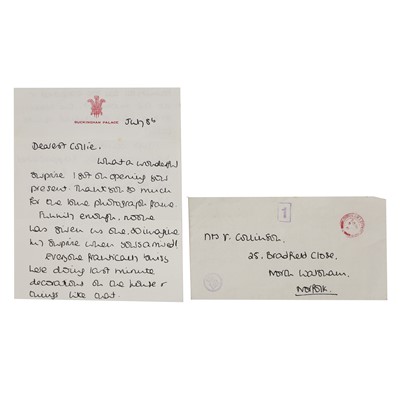 BUCKINGHAM PALACE
July 86
Dearest Collie,
What a wonderful
surprise I got on opening your
present. Thank you so much
for the lovely photograph frame
Funnily enough, noone
has given us one, so imagine
my surprise when yours arrived!
Everyone frantically busy
here doing last minute
decorations on the house &
things like that.
Mrs V. Collinson,
25, Bradfield Close,
North Walsham,
Norfolk.